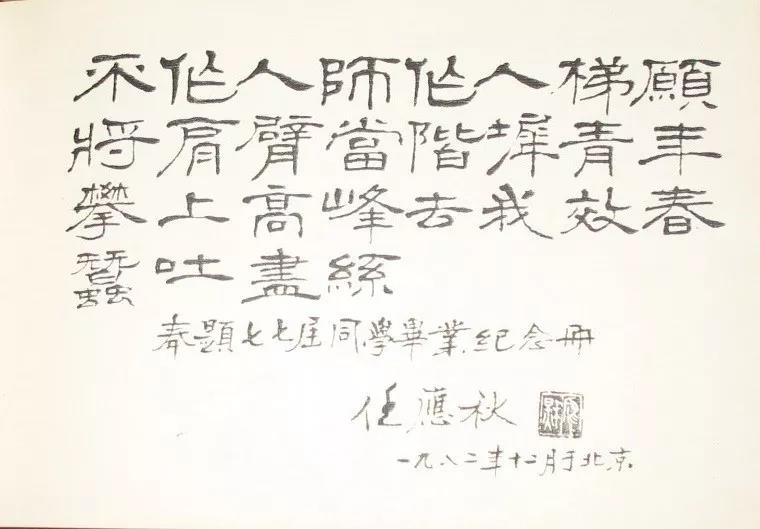 不作人師作人梯願
將肩臂當階墀青年
攀上高峰去我效春
蠶吐盡絲
奉題七七届同學畢業紀念冊
任應秋
一九八二年十二月于北京